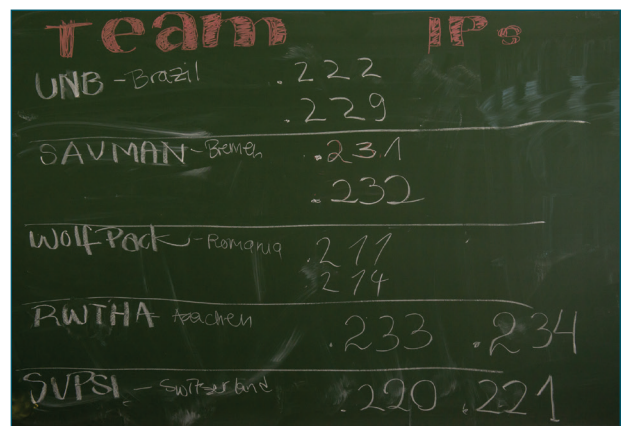 Team IPs
UNB - Brazil .222
.229
SAVMAN - Bremen .231
.232
WolfPack - Romania .211
.214
RWTHA Aachen .233 .234
SVPSI - Switzerland .220 .221